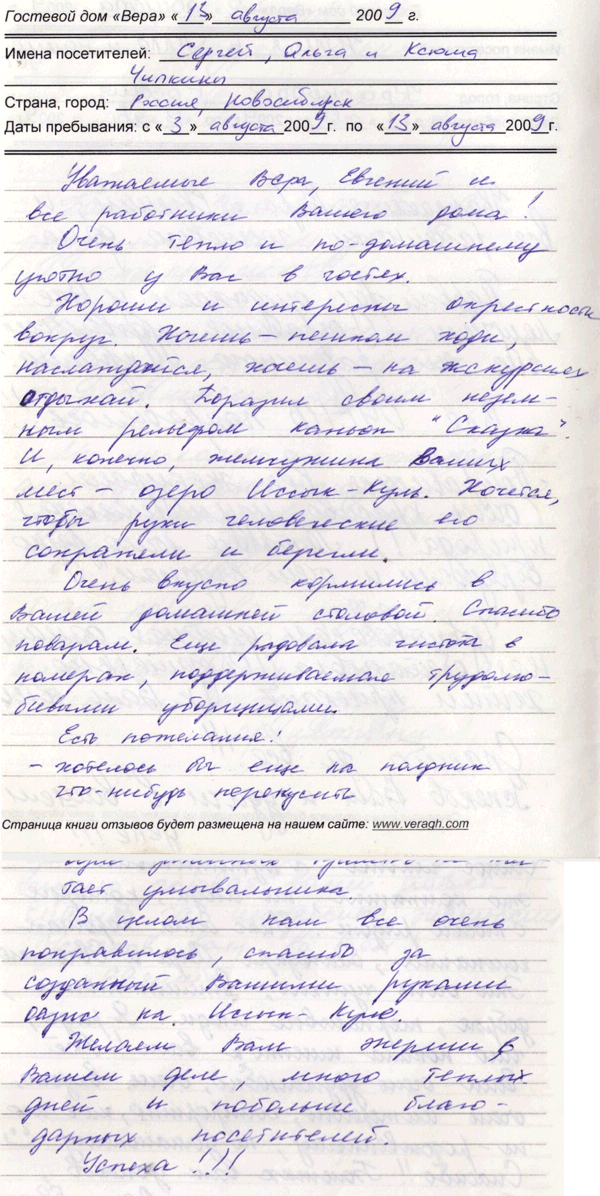 Гостевой дом «Вера» «13» августа 2009 г.
Имена посетителей: Сергей, Ольга и Ксюша
Чипкины
Страна, город: Россия, Новосибирск
Даты пребывания: с «3» августа 2009 г. по «13» августа 2009 г.
Уважаемые Вера, Евгений и
все работники Вашего дома!
Очень тепло и по-домашнему
уютно у Вас в гостях.
Хороши и интересны окрестности
вокруг. Хочешь – пешком ходи,
наслаждайся, хочешь – на экскурсиях
отдыхай. Поразил своим незем-
ным рельефом каньон "Сказка".
И, конечно, жемчужина Ваших
мест – озеро Иссык-Куль. Хочется,
чтобы руки человеческие его
сохраняли и берегли.
Очень вкусно кормились в
Вашей домашней столовой. Спасибо
поварам. Еще радовала чистота в
номерах, поддерживаемая трудолю-
бивыми уборщицами.
Есть пожелания:
- хотелось бы еще на полдник
что-нибудь перекусить
Страница книги отзывов будет размещена на нашем сайте: www.veragh.com
тает умывальника.
В целом нам все очень
понравилось, спасибо за
созданный Вашими руками
оазис на Иссык-Куле.
Желаем Вам энергии в
Вашем деле, много теплых
дней и побольше благо-
дарных посетителей.
Успеха!!!